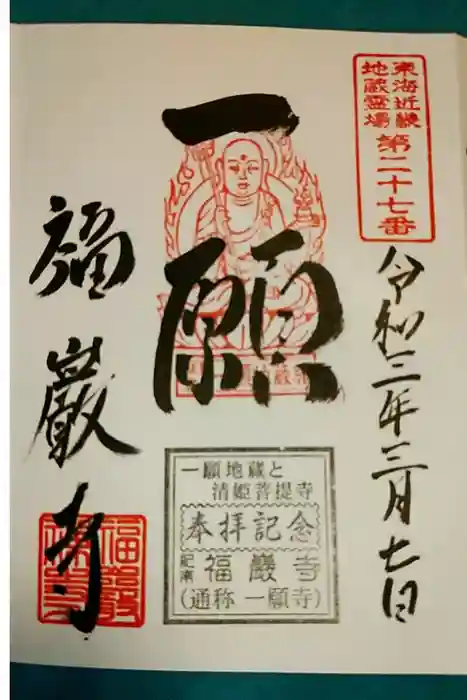 東海近畿
地蔵霊場
第二十七番
令和三年三月七日
一願
福巖寺
一願地蔵と
清姫菩提寺
奉拝記念
紀南 福巖寺
(通称 一願寺)